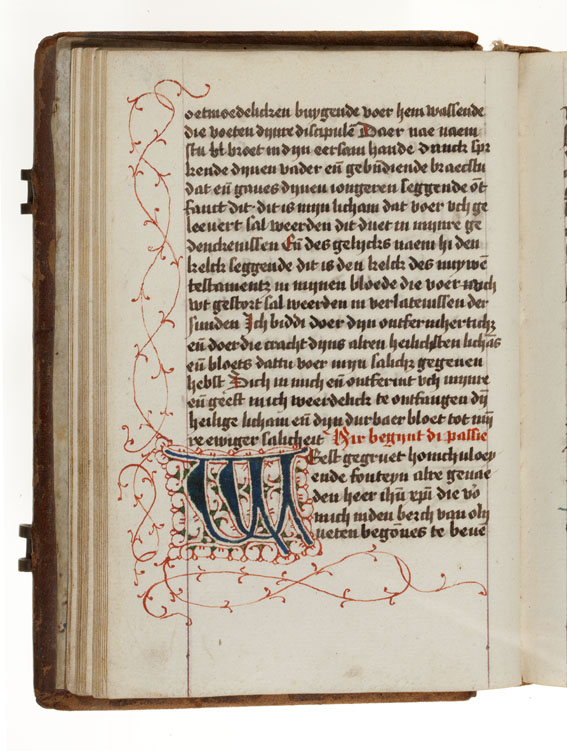 oetmoedelicken buygende voer hem wassende
die voeten dijnre discipulē Daer nae naem
stu dt broet in dijn eersam hande danck spr
kende dijnen vader eñ gebn̄diende braecstu
dat eñ gaues dijnen iongeren seggende ōt
fanct dit · dit is mijn licham dat voer vch ge
leeuert sal weerden dit duet in mijnre ge
denckenissen Eñ des gelijcks naem hi den
kelck seggende dit is den kelck des nuywē
testamentz in mijnen bloede die voer uch
wt gestort sal weerden in verlatenissen der
sunden Ich biddi doer dijn ontfermhertichz
eñ doer die cracht dijns alren heilichsten lichās
eñ bloets dattu voer mijn salichz gegeuen
hebst Sich in mich eñ ontfermt vch mijnre
eñ geeft mich weerdelick te ontfangen dij
heilige licham eñ dijn durbaer bloet tot mij
re ewiger salicheit Hir begijnt di passie
Weest gegruet honichuloey
ende fonteyn alre genae
den heer ihū xpū die vō
mich inden berch van olij
ueten begōnes te beuē